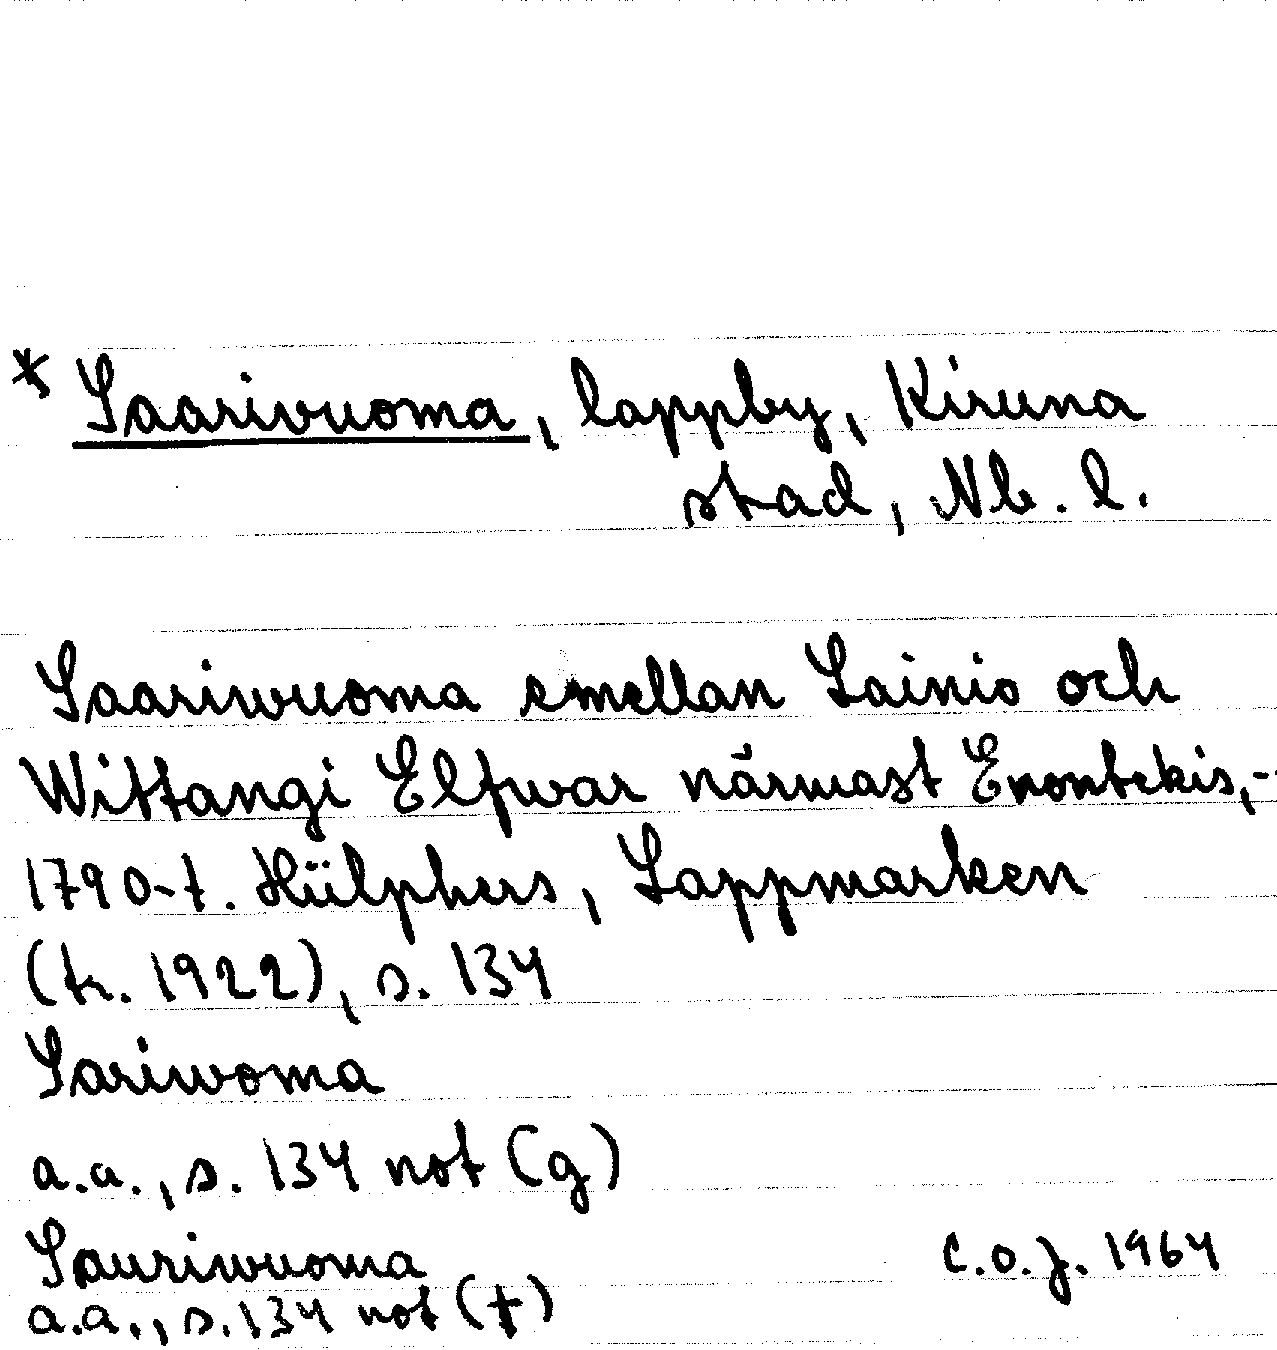 * Saarivuoma, lappby, Kiruna
stad, Nb. l.
Saariwuoma emellan Lainio och
Wittangi Elfwar närmast Enontekis, -
1790-t. Hülphers, Lappmarken
(tr. 1922), s. 134
Sariwoma
a.a., s. 134 not (g)
Sauriwuoma
a.a., s. 134 not (t)
C.O.J. 1964